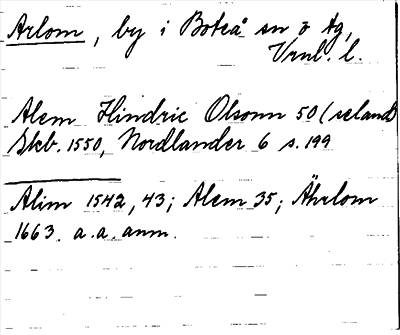 Arlom, by i Boteå sn o tg,
Vrnl. l.
Alem Hindric Olsonn 50 (seland)
Skb. 1550, Nordlander 6 s. 199
Alim 1542, 43; Alem 35; Åhrlom
1663. a.a. anm.